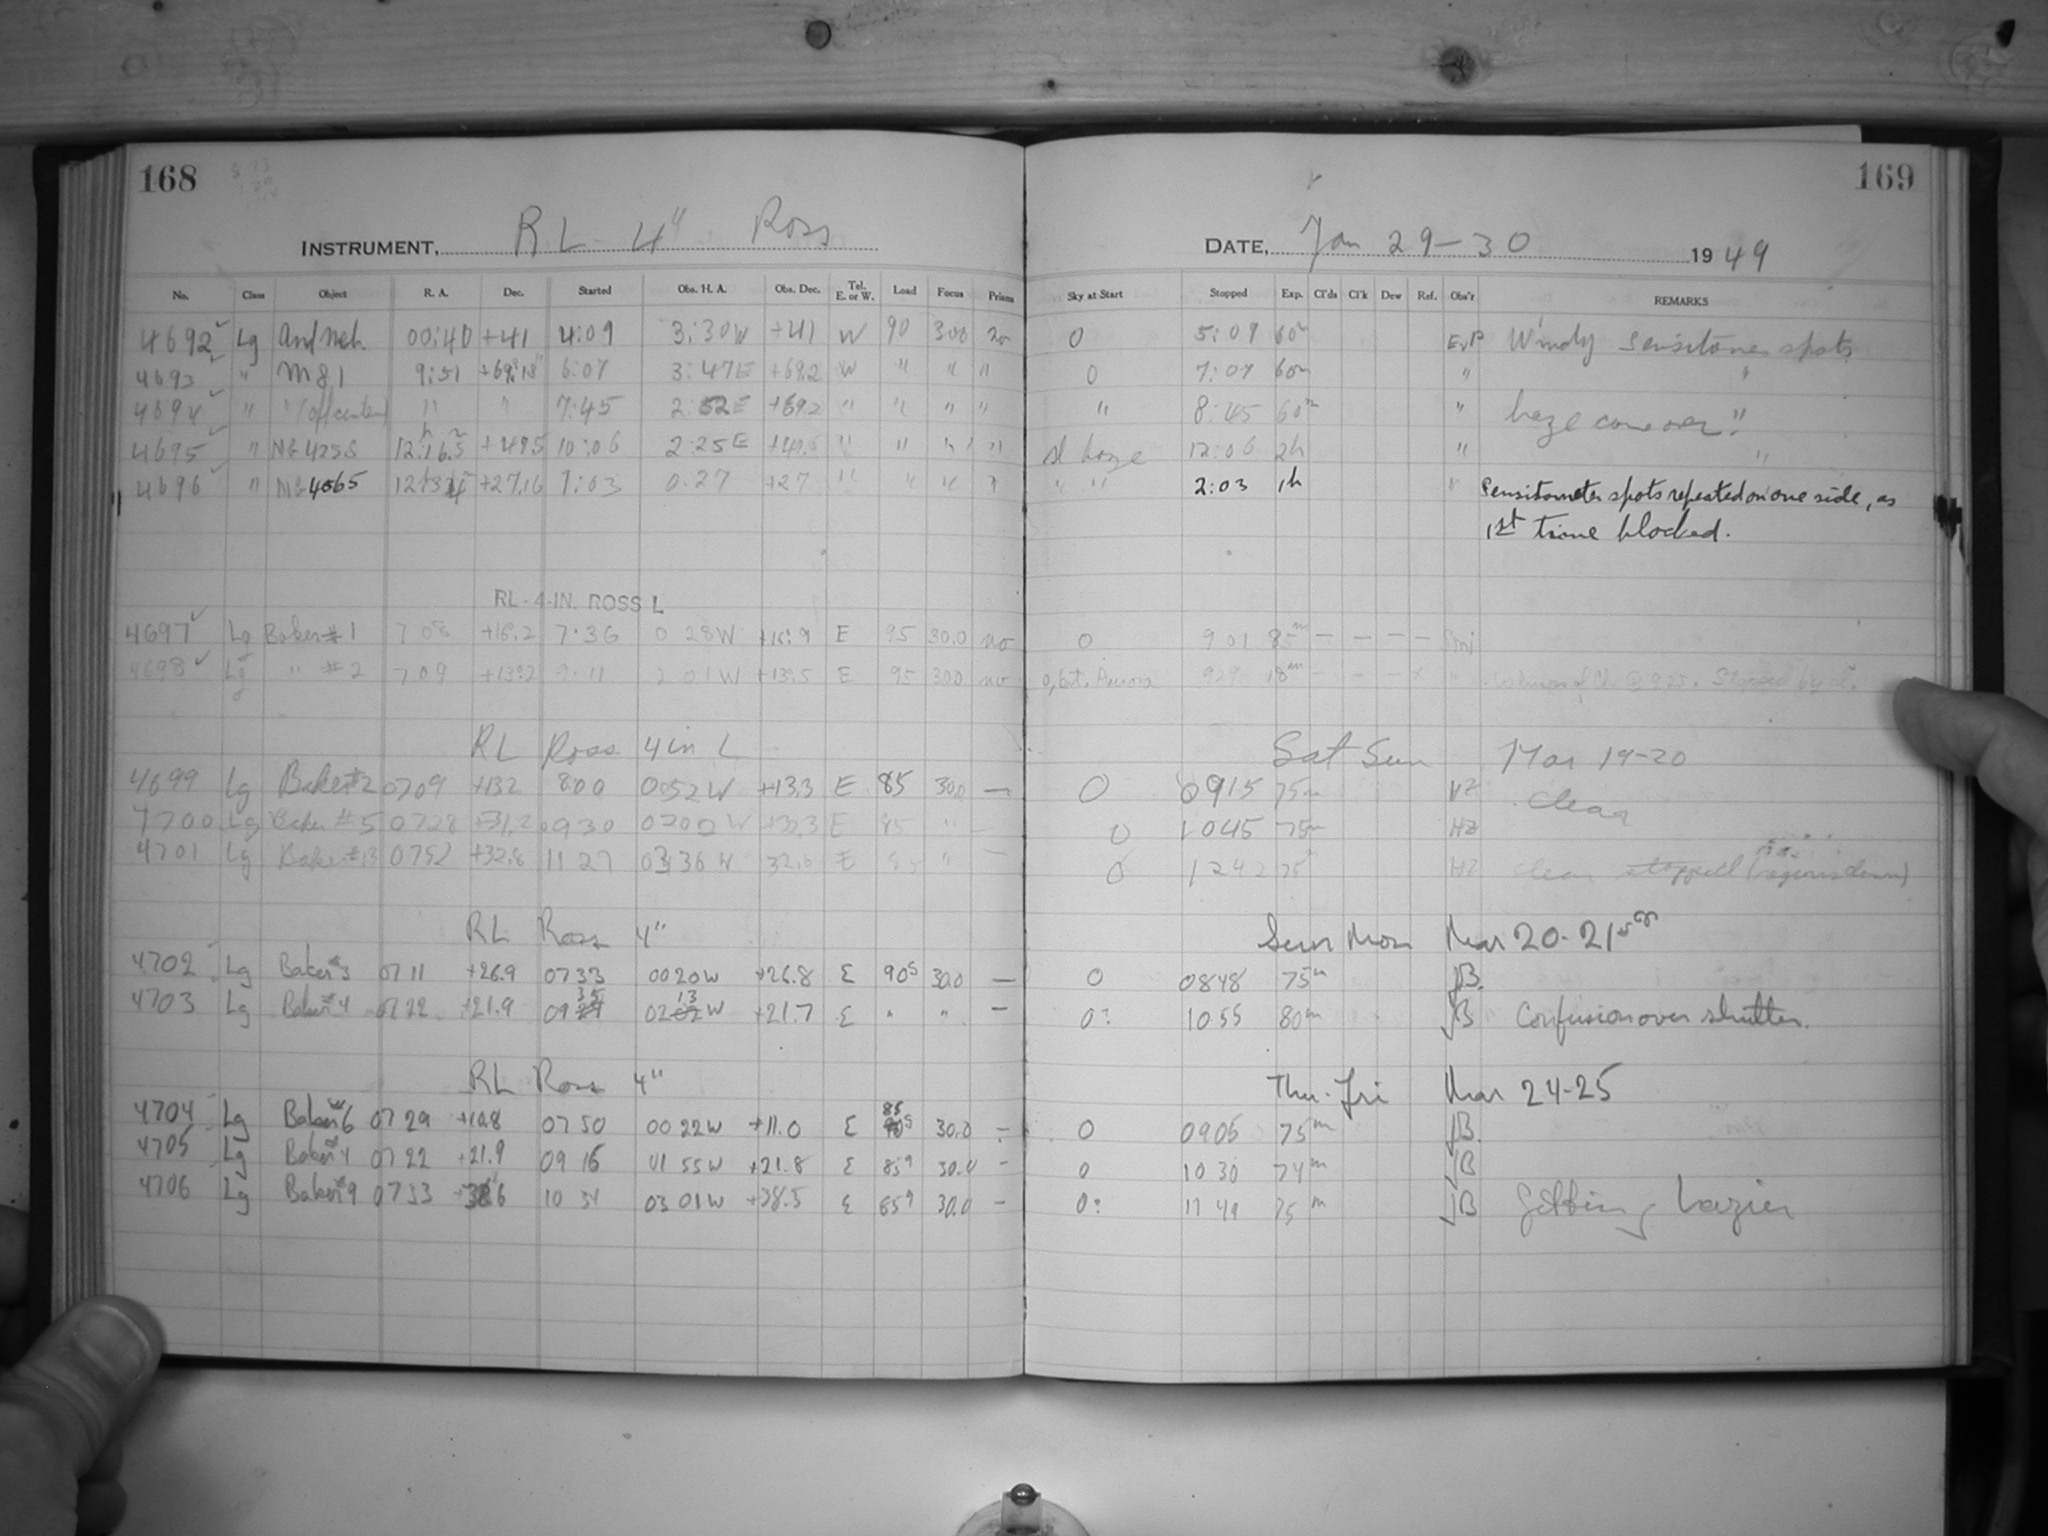 168
169
INSTRUMENT, RL - 4" Ross
DATE, Jan 29-30 1949
No. Class Object R. A. Dec. Started Obs. H. A. Obs. Dec. Tel. E. or W. Load Focus Prism Sky at Start Stopped Exp. Cl'ds Cl'k Dew Ref. Obs'r REMARKS
4692 Lg And Neb. 00:40 +41 4:09 3:30W +41 W 90 300 no 0 5:09 60m EvP Windy Sensitometer spots
4693 " M81 9:51 6:07 3:47E +69.2 W " " " 0 7:07 60m " "
4694 " " (off center) " " 7:45 2:52E +69.2 " " " " " 8:45 60m " haze came over "
4695 " 12h16.5 +49.5 10:06 2:25E " " " " sl haze 12:06 2h " "
4696 " +27.16 1:03 0:27 +27 " " " " " " 2:03 1h " Sensitometer spots repeated on one side, as
1st time blocked.
RL - 4-IN. ROSS L
4697 Lg Baker #1 7 08 +16.2 7:36 0 28W E 95 30.0 no 0 9 01 85m - - - -
4698 Lg " #2 7 09 +13.2 9:11 2 01W +13.5 E 95 300 no Aurora 929 18m - - - " Stopped by cl.
RL Ross 4 in L Sat Sun Mar 19-20
4699 Lg Baker #2 0709 +13.2 800 0052W +13.3 E 85 30.0 — 0 0915 75m HZ clear
4700 Lg Baker #5 0728 +31.2 0930 0202W E 85 " — 0 1045 75m HZ
4701 Lg Baker #13 0752 +32.8 1127 0336W 32.6 E 85 " — 0 1242 75 HZ clear stopped
RL Ross 4" Sun Mon Mar 20-21
4702 Lg Baker #3 07 11 +26.9 0733 0020W +26.8 E 90s 30.0 — 0 0848 75m JB.
4703 Lg Baker #4 07 22 +21.9 09 35 02 13 W +21.7 E " " — 0? 10 55 80m JB Confusion over shutter.
RL Ross 4" Thu.-Fri Mar 24-25
4704 Lg Baker #6 07 29 +10.8 07 50 00 22W +11.0 E 85 30.0 - 0 0905 75m JB.
4705 Lg Baker #4 07 22 +21.9 09 16 01 55W +21.8 E 30.0 - 0 10 30 74m JB
4706 Lg Baker #9 07 33 10 34 03 01W +38.5 E 30.0 - 0? 11 49 75m JB Getting hazier